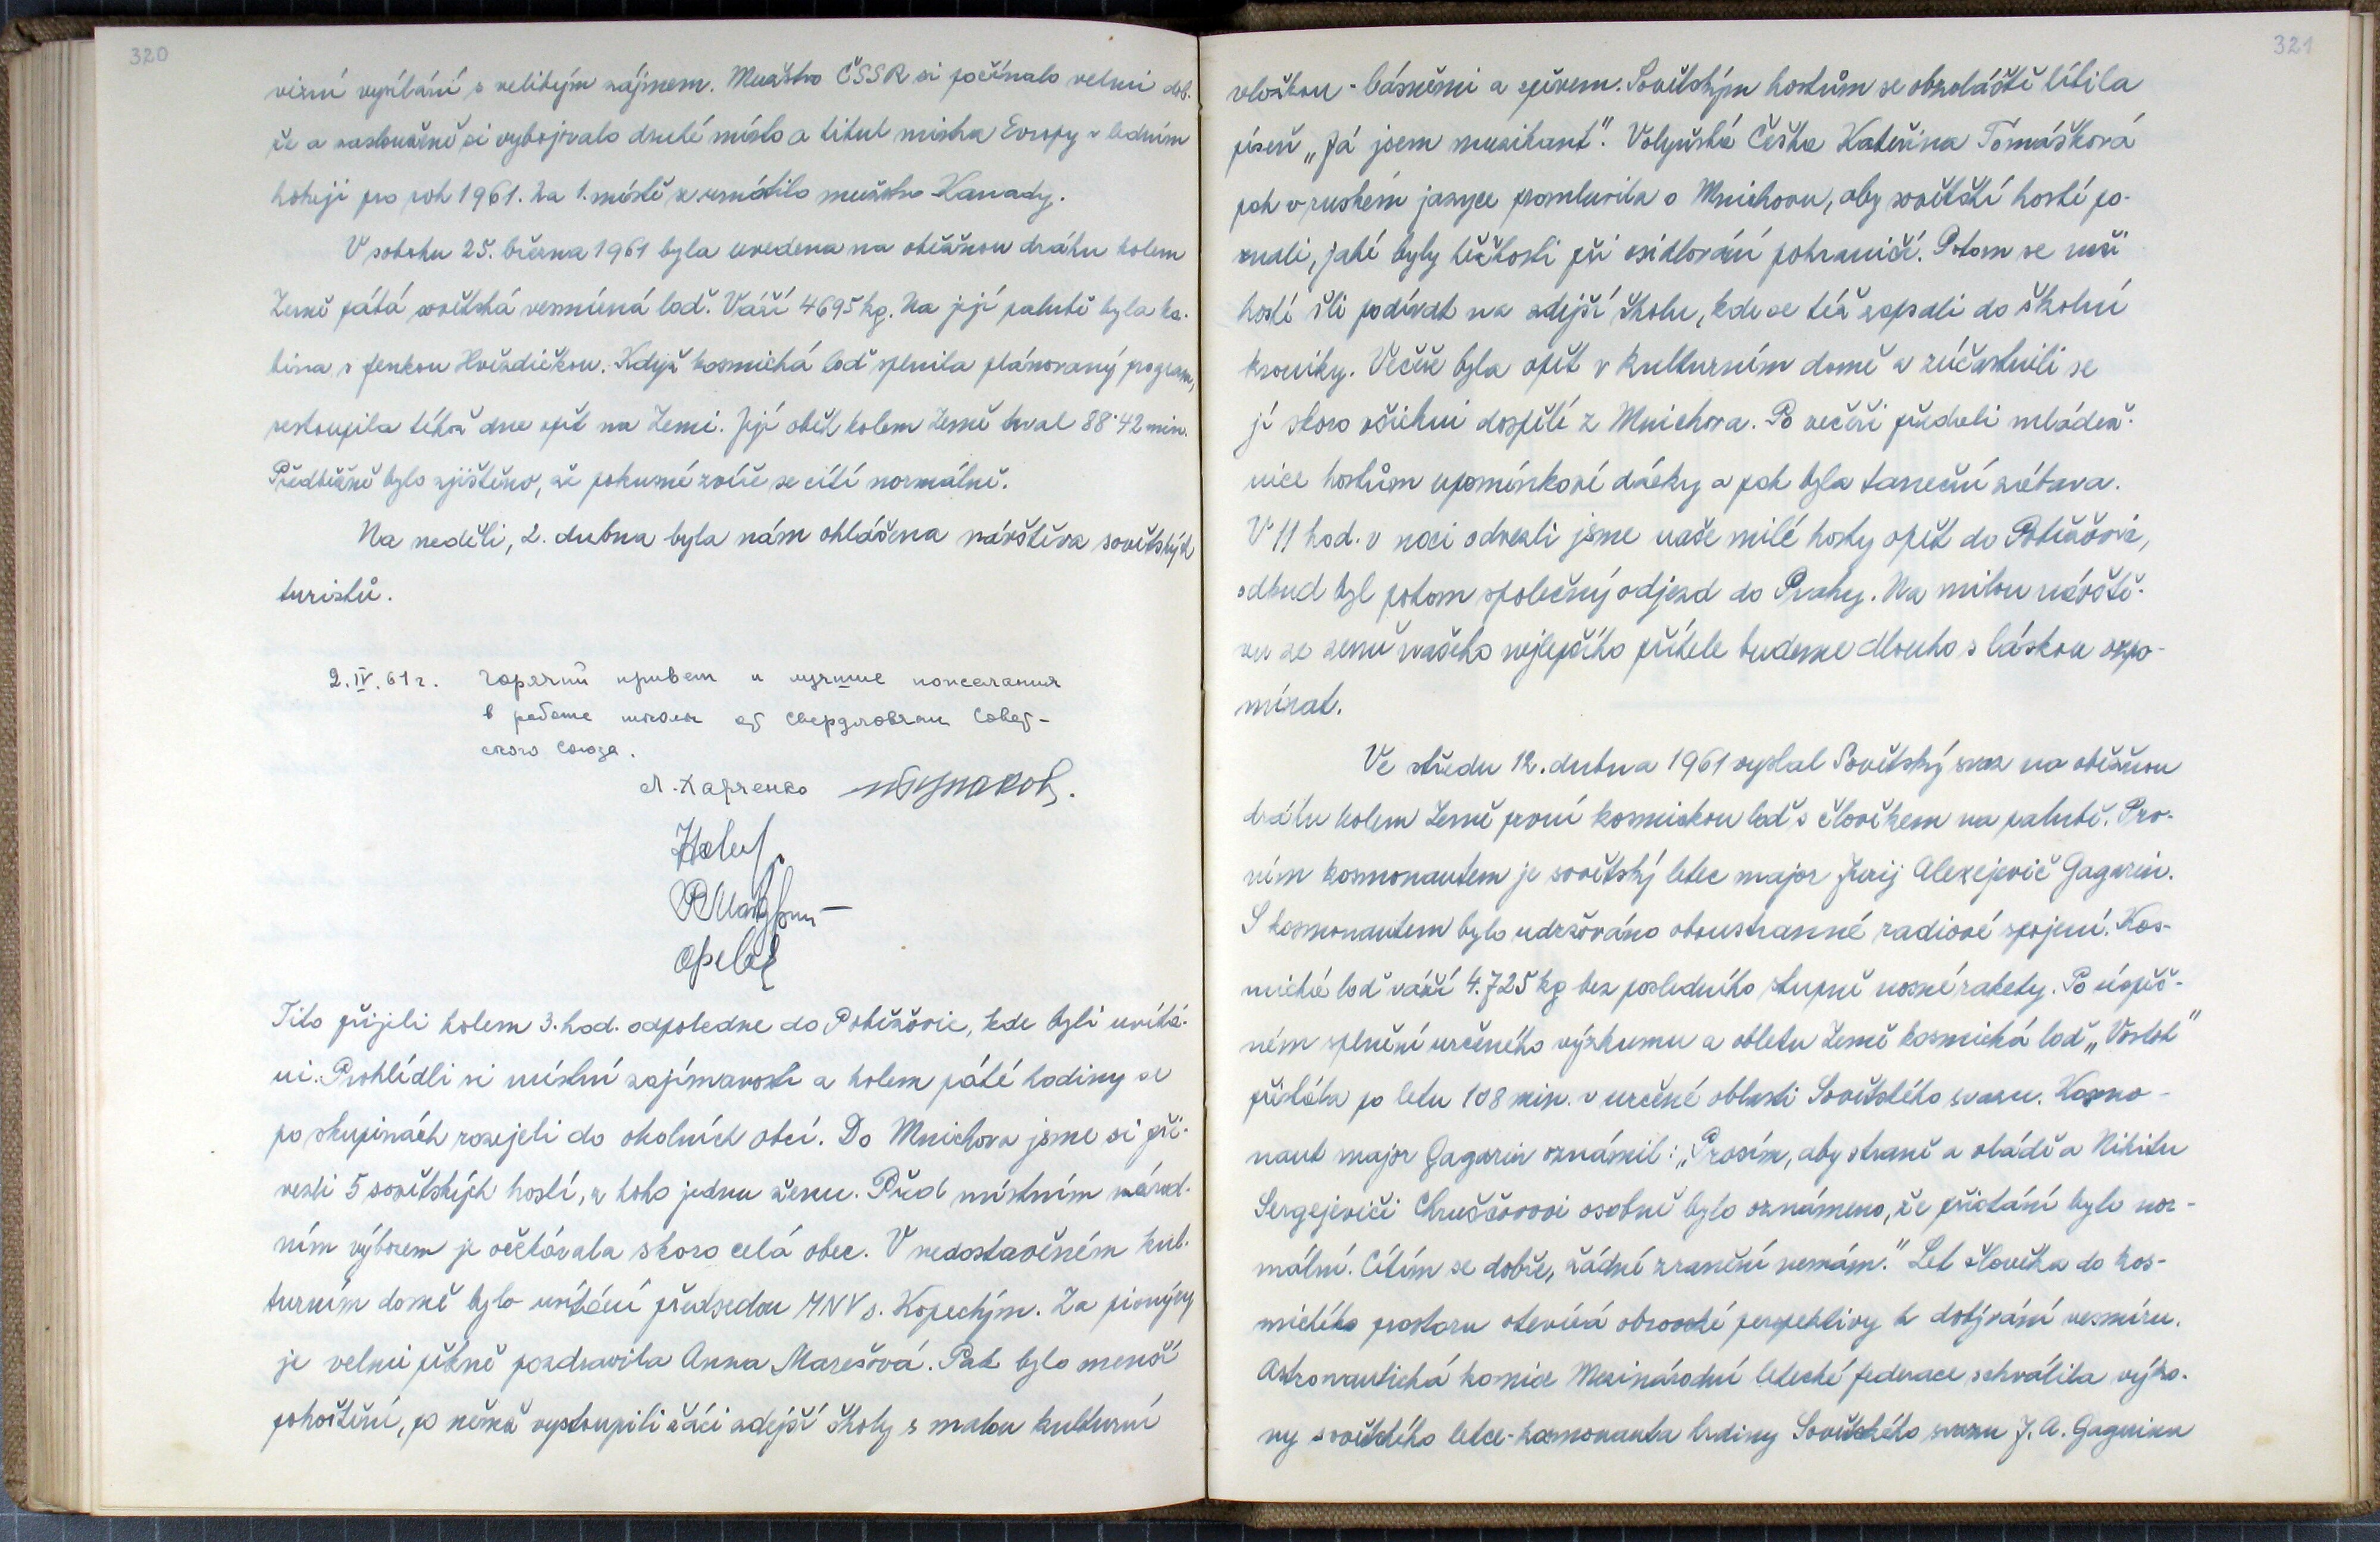 320
vizní vysílání s velikým zájmem. Mužstvo ČSSR si počínalo velmi dob-
ře a zaslouženě si vybojovalo druhé místo a titul mistra Evropy v ledním
hokeji pro rok 1961. Na 1. místě se umístilo mužstvo Kanady.
V sobotu 25. března 1961 byla uvedena na oběžnou dráhu kolem
Země pátá sovětská vesmírná loď. Váží 4695 kg. Na její palubě byla ka-
bina s fenkou Hvězdičkou. Když kosmická loď splnila plánovaný program,
sestoupila téhož dne opět na Zemi. Její oběh kolem Země trval 88·42 min.
Předběžně bylo zjištěno, že pokusné zvíře se cítí normálně.
Na neděli, 2. dubna byla nám ohlášena návštěva sovětských
turistů.
2.IV.61г. Горячий привет и лучшие пожелания
в работе школы от свердловчан Совет-
ского Союза.
Л. Харченко
Tito přijeli kolem 3. hod. odpoledne do Poběžovic, kde byli uvítá-
ni. Prohlídli si místní zajímavosti a kolem páté hodiny se
po skupinách rozejeli do okolních obcí. Do Mnichova jsme si při-
vezli 5 sovětských hostí, z toho jednu ženu. Před místním národ-
ním výborem je očekávala skoro celá obec. V nedostavěném kul-
turním domě bylo uvítání předsedou MNV s. Kopeckým. Za pionýry
je velmi pěkně pozdravila Anna Marešová. Pak bylo menší
pohoštění, po němž vystoupili žáci zdejší školy s malou kulturní
321
vložkou - básněmi a zpěvem. Sovětským hostům se obzvláště líbila
píseň „Já jsem muzikant". Volyňská Češka Kateřina Tomášková
pak v ruském jazyce promluvila o Mnichovu, aby sovětští hosté po-
znali, jaké byly těžkosti při osidlování pohraničí. Potom se naši
hosté šli podívat na zdejší školu, kde se též zapsali do školní
kroniky. Večeře byla opět v kulturním domě a zúčastnili se
jí skoro všichni dospělí z Mnichova. Po večeři předali mládež-
níce hostům upomínkové dárky a pak byla taneční zábava.
V 11 hod. v noci odvezli jsme naše milé hosty opět do Poběžovic,
odkud byl potom společný odjezd do Prahy. Na milou návště-
vu ze země našeho nejlepšího přítele budeme dlouho s láskou vzpo-
mínat.
Ve středu 12. dubna 1961 vyslal Sovětský svaz na oběžnou
dráhu kolem Země první kosmickou loď s člověkem na palubě. Prv-
ním kosmonautem je sovětský letec major Jurij Alexejevič Gagarin.
S kosmonautem bylo udržováno oboustranné radiové spojení. Kos-
mická loď váží 4.725 kg bez posledního stupně nosné rakety. Po úspěš-
ném splnění určeného výzkumu a obletu Země kosmická loď „Vostok"
přistála po letu 108 min. v určené oblasti Sovětského svazu. Kosmo-
naut major Gagarin oznámil: „Prosím, aby straně a vládě a Nikitu
Sergejeviči Chruščovovi osobně bylo oznámeno, že přistání bylo nor-
mální. Cítím se dobře, žádné zranění nemám." Let člověka do kos-
mického prostoru otevírá obrovské perspektivy k dobývání vesmíru.
Astronautická komise Mezinárodní letecké federace schválila výko-
ny sovětského letce-kosmonauta hrdiny Sovětského svazu J. A. Gagarina